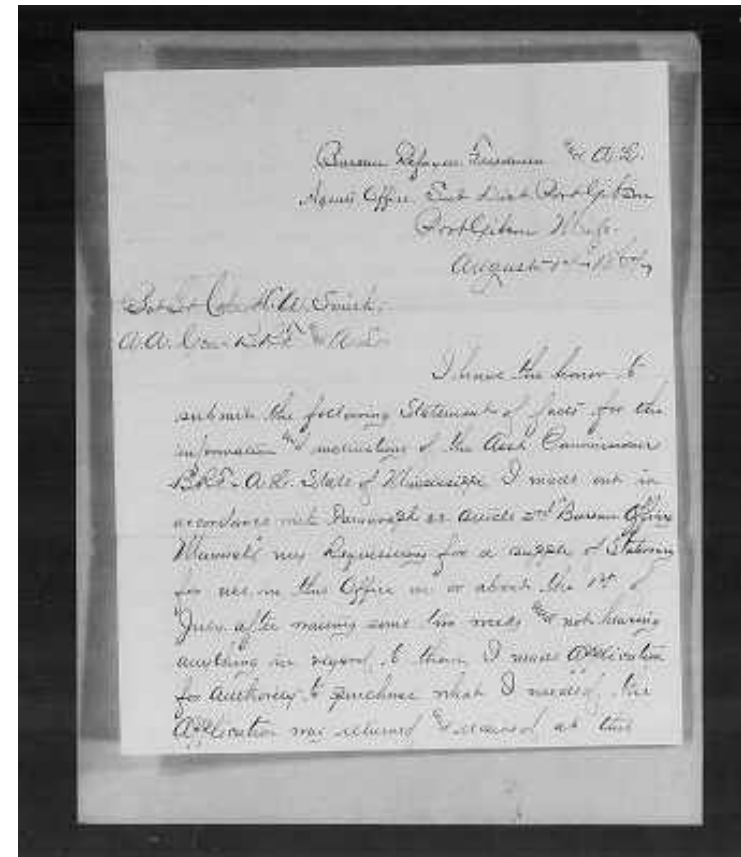 Bureau Refugees Freedmen and A. L.
Agents Office Sub Dist Port Gibson
Port Gibson Miss.
August 186
Bvt Lt Col H. A. Smith,
A. A. A. L.
I have the honor to
submit the following Statement of facts for the
information and instructions of the Asst Commissioner
B.R.F. A. L. State of Mississippi I made out in
accordance with Paragraph Article 2nd Bureau Officers
Manual my Requisitions for a supply of Stationery
for use in this Office on or about the 1st of
July after waiting some two weeks and not hearing
anything in regard to them I made Application
for Authority to purchase what I needed, the
Application was returned and received at this